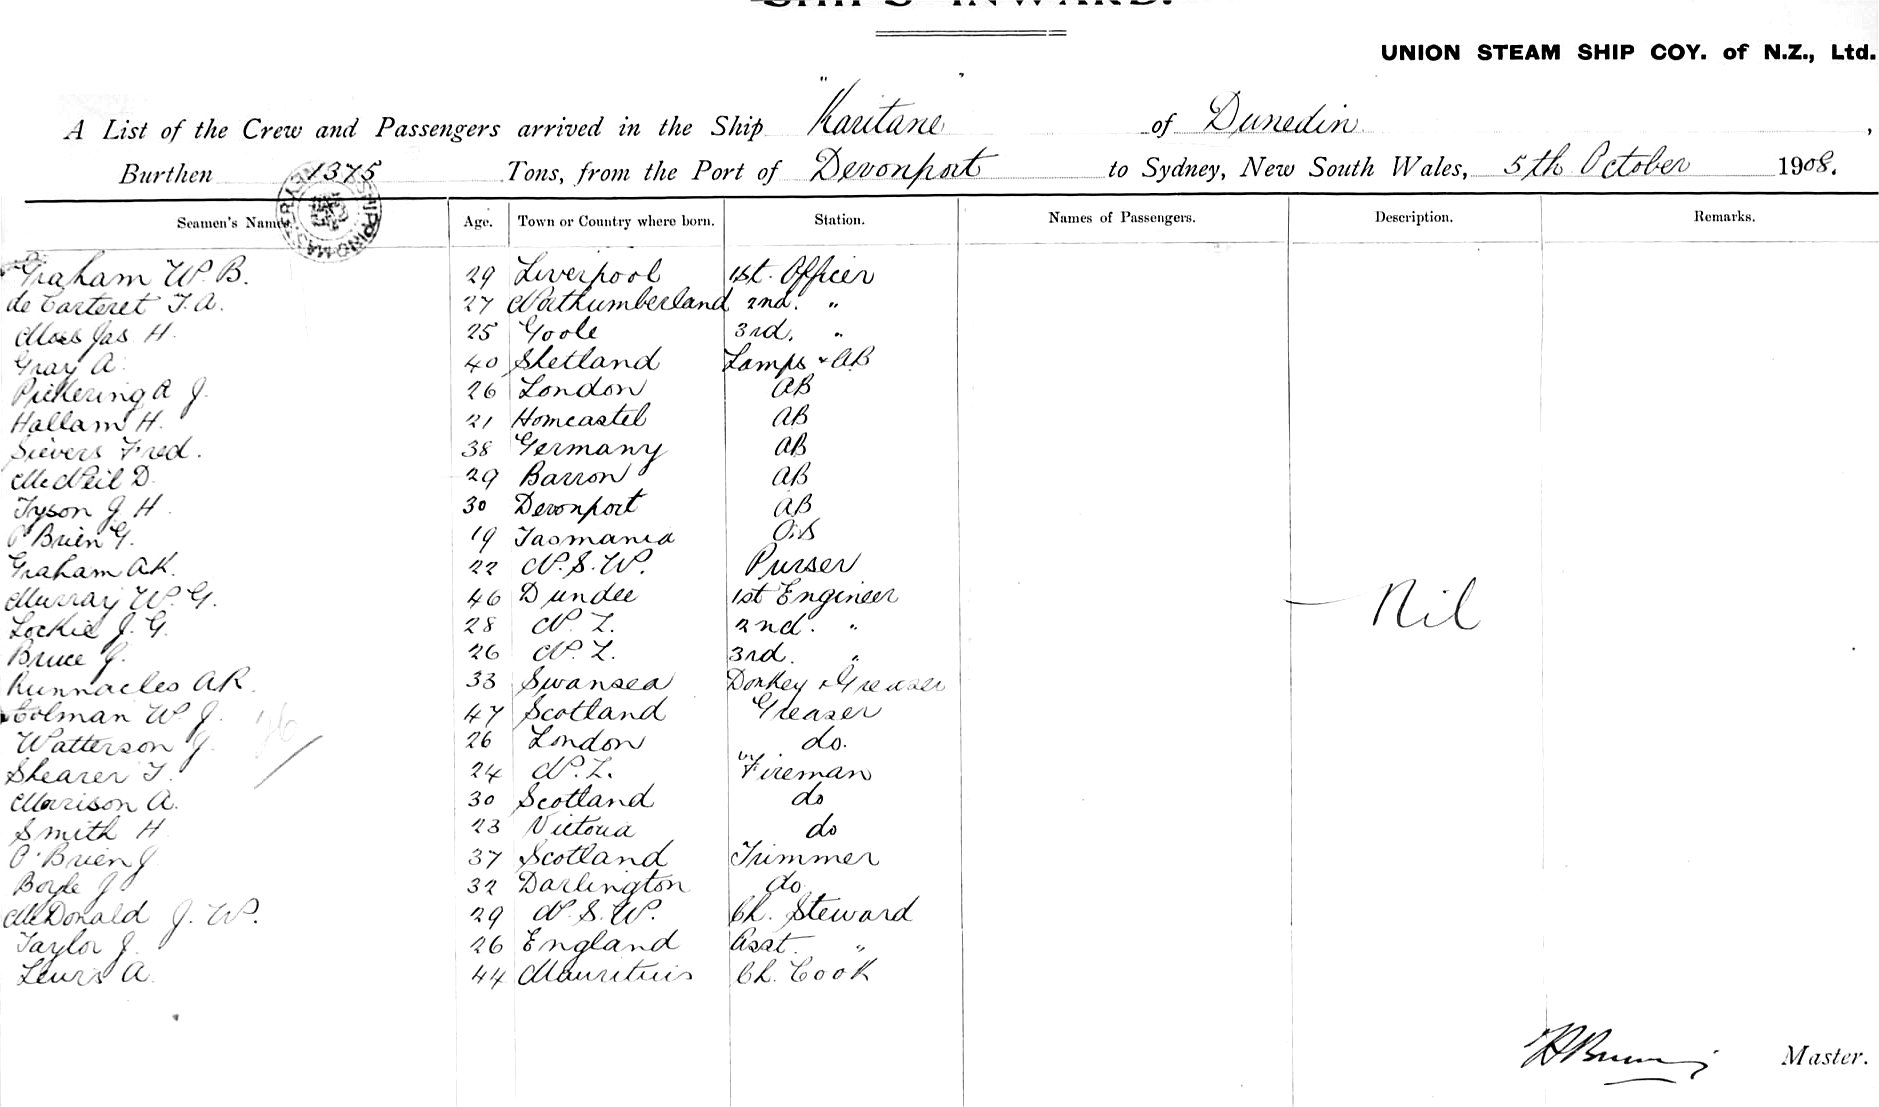 SHIPS INWARD.
UNION STEAM SHIP COY. of N.Z., Ltd.
A List of the Crew and Passengers arrived in the Ship "Karitane" of Dunedin,
Burthen 1375 Tons, from the Port of Devonport to Sydney, New South Wales, 5th October 1908.
Seamen's Names. Age. Town or Country where born. Station. Names of Passengers. Description. Remarks.
Graham W. B. 29 Liverpool 1st. Officer
de Carteret T. A. 27 Northumberland 2nd. "
Moss Jas H. 25 Goole 3rd. "
Gray A. 40 Shetland Lamps & AB
Pickering A J. 26 London AB
Hallam H. 21 Horncastel AB
Sievers Fred. 38 Germany AB
McNeil D. 29 Barron AB
Tyson J H. 30 Devonport AB
O'Brien G. 19 Tasmania O.S
Graham A.K. 22 N.S.W. Purser
Murray W. G. 46 Dundee 1st Engineer
Lockie J. G. 28 N. Z. 2nd. "
Bruce J. 26 N. Z. 3rd. "
Runnacles A R. 33 Swansea Donkey & Greaser
Colman W J. 47 Scotland Greaser
Watterson J. 26 London do.
Shearer T. 24 N. Z. Fireman
Morison A. 30 Scotland do
Smith H 23 Victoria do
O'Brien J 37 Scotland Trimmer
Boyle J 32 Darlington do
McDonald J. W. 29 N. S. W. Ch. Steward
Taylor J. 26 England Asst. "
Lewis A. 44 Mauritius Ch. Cook
Nil
Master.